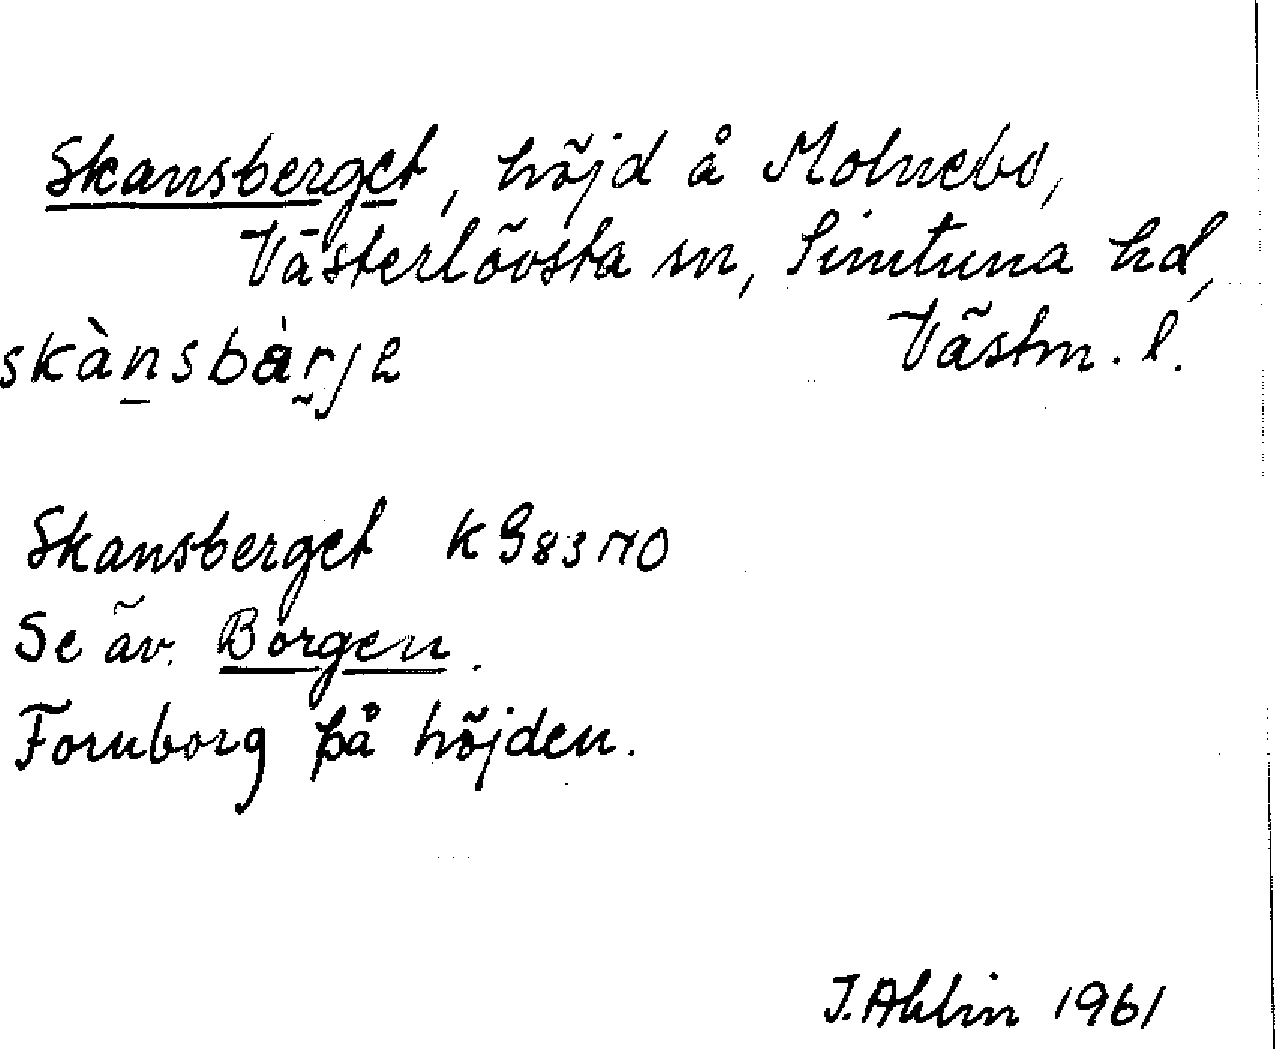 Skansberget, höjd å Molnebo,
Västerlövsta sn, Simtuna hd,
Västm. l.
skànsbàrj2
Skansberget k G83 NO
Se äv. Borgen.
Fornborg på höjden.
J. Ahlin 1961